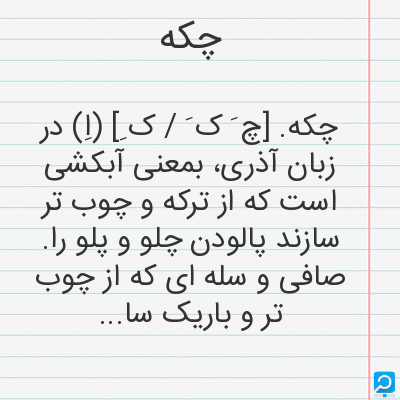 چکه
چکه. [چ َ ک َ / ک ِ] (اِ) در
زبان آذری، بمعنی آبکشی
است که از ترکه و چوب تر
سازند پالودن چلو و پلو را.
صافی و سله ای که از چوب
تر و باریک سا...